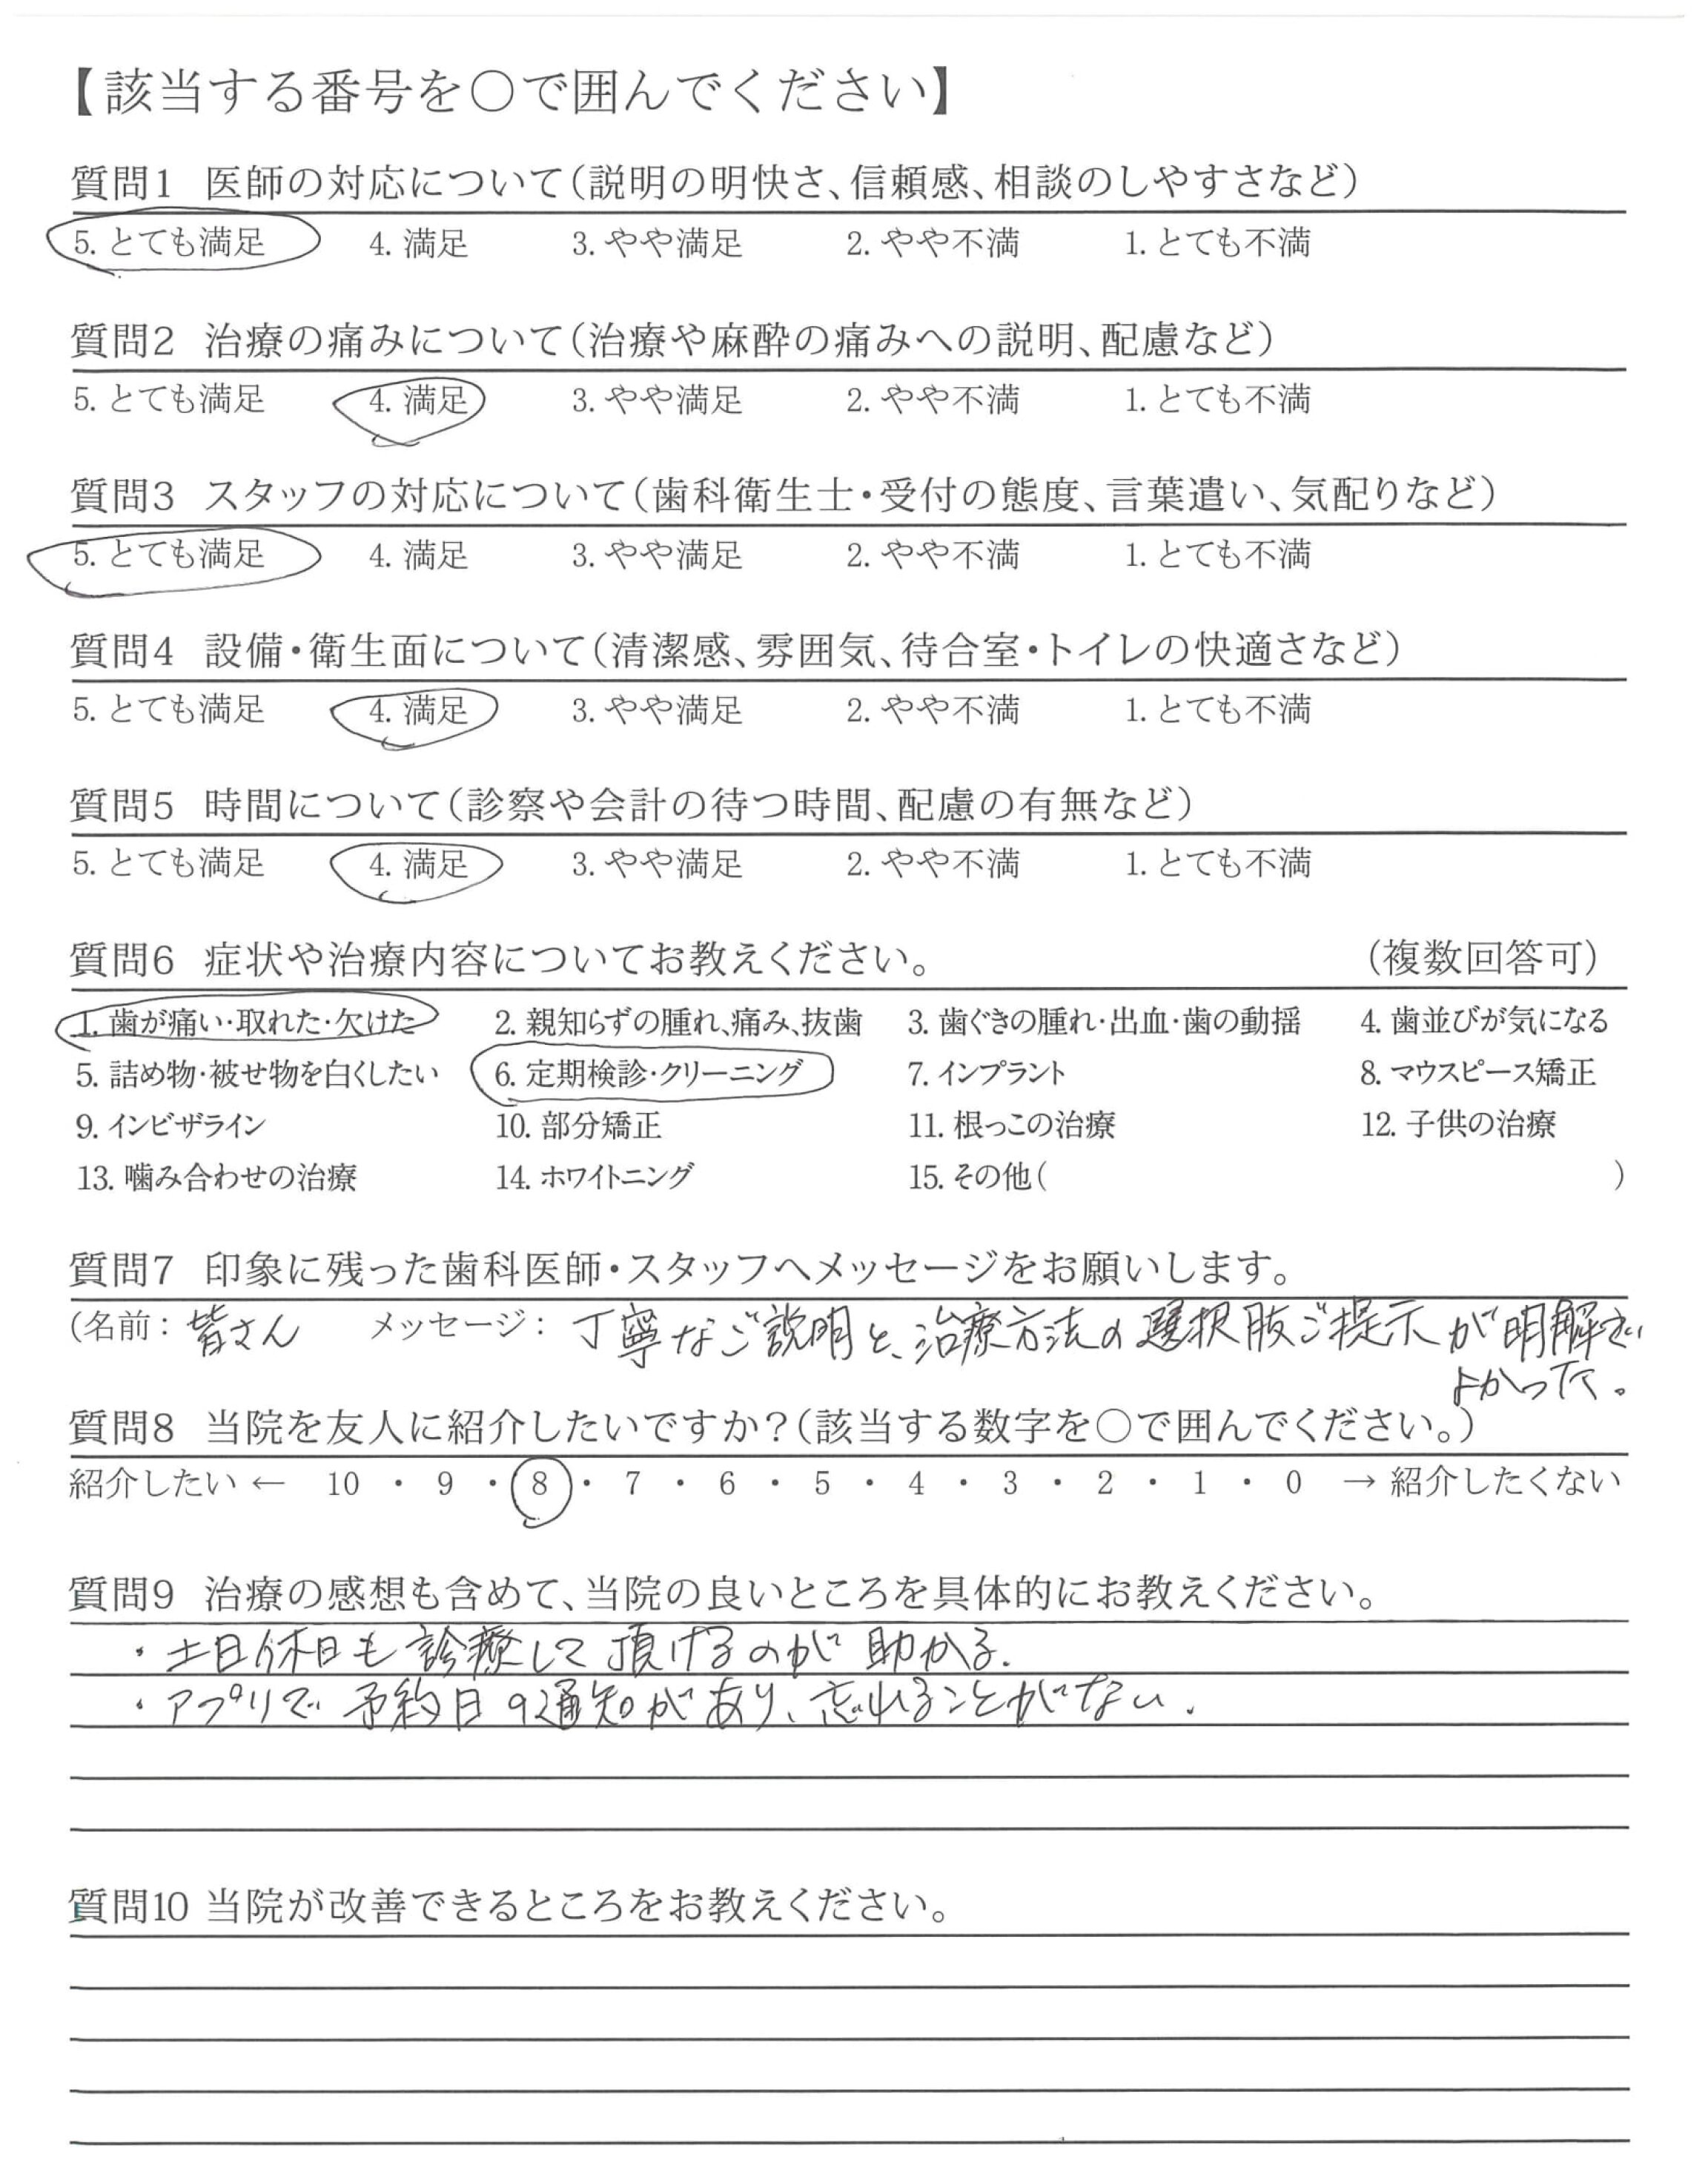 【該当する番号を○で囲んでください】
質問1 医師の対応について(説明の明快さ、信頼感、相談のしやすさなど)
5. とても満足 4. 満足 3. やや満足 2. やや不満 1. とても不満
質問2 治療の痛みについて(治療や麻酔の痛みへの説明、配慮など)
5. とても満足 4. 満足 3. やや満足 2. やや不満 1. とても不満
質問3 スタッフの対応について(歯科衛生士・受付の態度、言葉遣い、気配りなど)
5. とても満足 4. 満足 3. やや満足 2. やや不満 1. とても不満
質問4 設備・衛生面について(清潔感、雰囲気、待合室・トイレの快適さなど)
5. とても満足 4. 満足 3. やや満足 2. やや不満 1. とても不満
質問5 時間について(診察や会計の待つ時間、配慮の有無など)
5. とても満足 4. 満足 3. やや満足 2. やや不満 1. とても不満
質問6 症状や治療内容についてお教えください。 (複数回答可)
1. 歯が痛い・取れた・欠けた 2. 親知らずの腫れ、痛み、抜歯 3. 歯ぐきの腫れ・出血・歯の動揺 4. 歯並びが気になる
5. 詰め物・被せ物を白くしたい 6. 定期検診・クリーニング 7. インプラント 8. マウスピース矯正
9. インビザライン 10. 部分矯正 11. 根っこの治療 12. 子供の治療
13. 噛み合わせの治療 14. ホワイトニング 15. その他( )
質問7 印象に残った歯科医師・スタッフへメッセージをお願いします。
(名前: 皆さん メッセージ: 丁寧なご説明と、治療方法の選択肢ご提示が明解で
よかった。
質問8 当院を友人に紹介したいですか?(該当する数字を○で囲んでください。)
紹介したい ← 10 ・ 9 ・ 8 ・ 7 ・ 6 ・ 5 ・ 4 ・ 3 ・ 2 ・ 1 ・ 0 → 紹介したくない
質問9 治療の感想も含めて、当院の良いところを具体的にお教えください。
・土日休日も診療して頂けるのが助かる.
・アプリで予約日の通知があり、忘れることがない.
質問10 当院が改善できるところをお教えください。